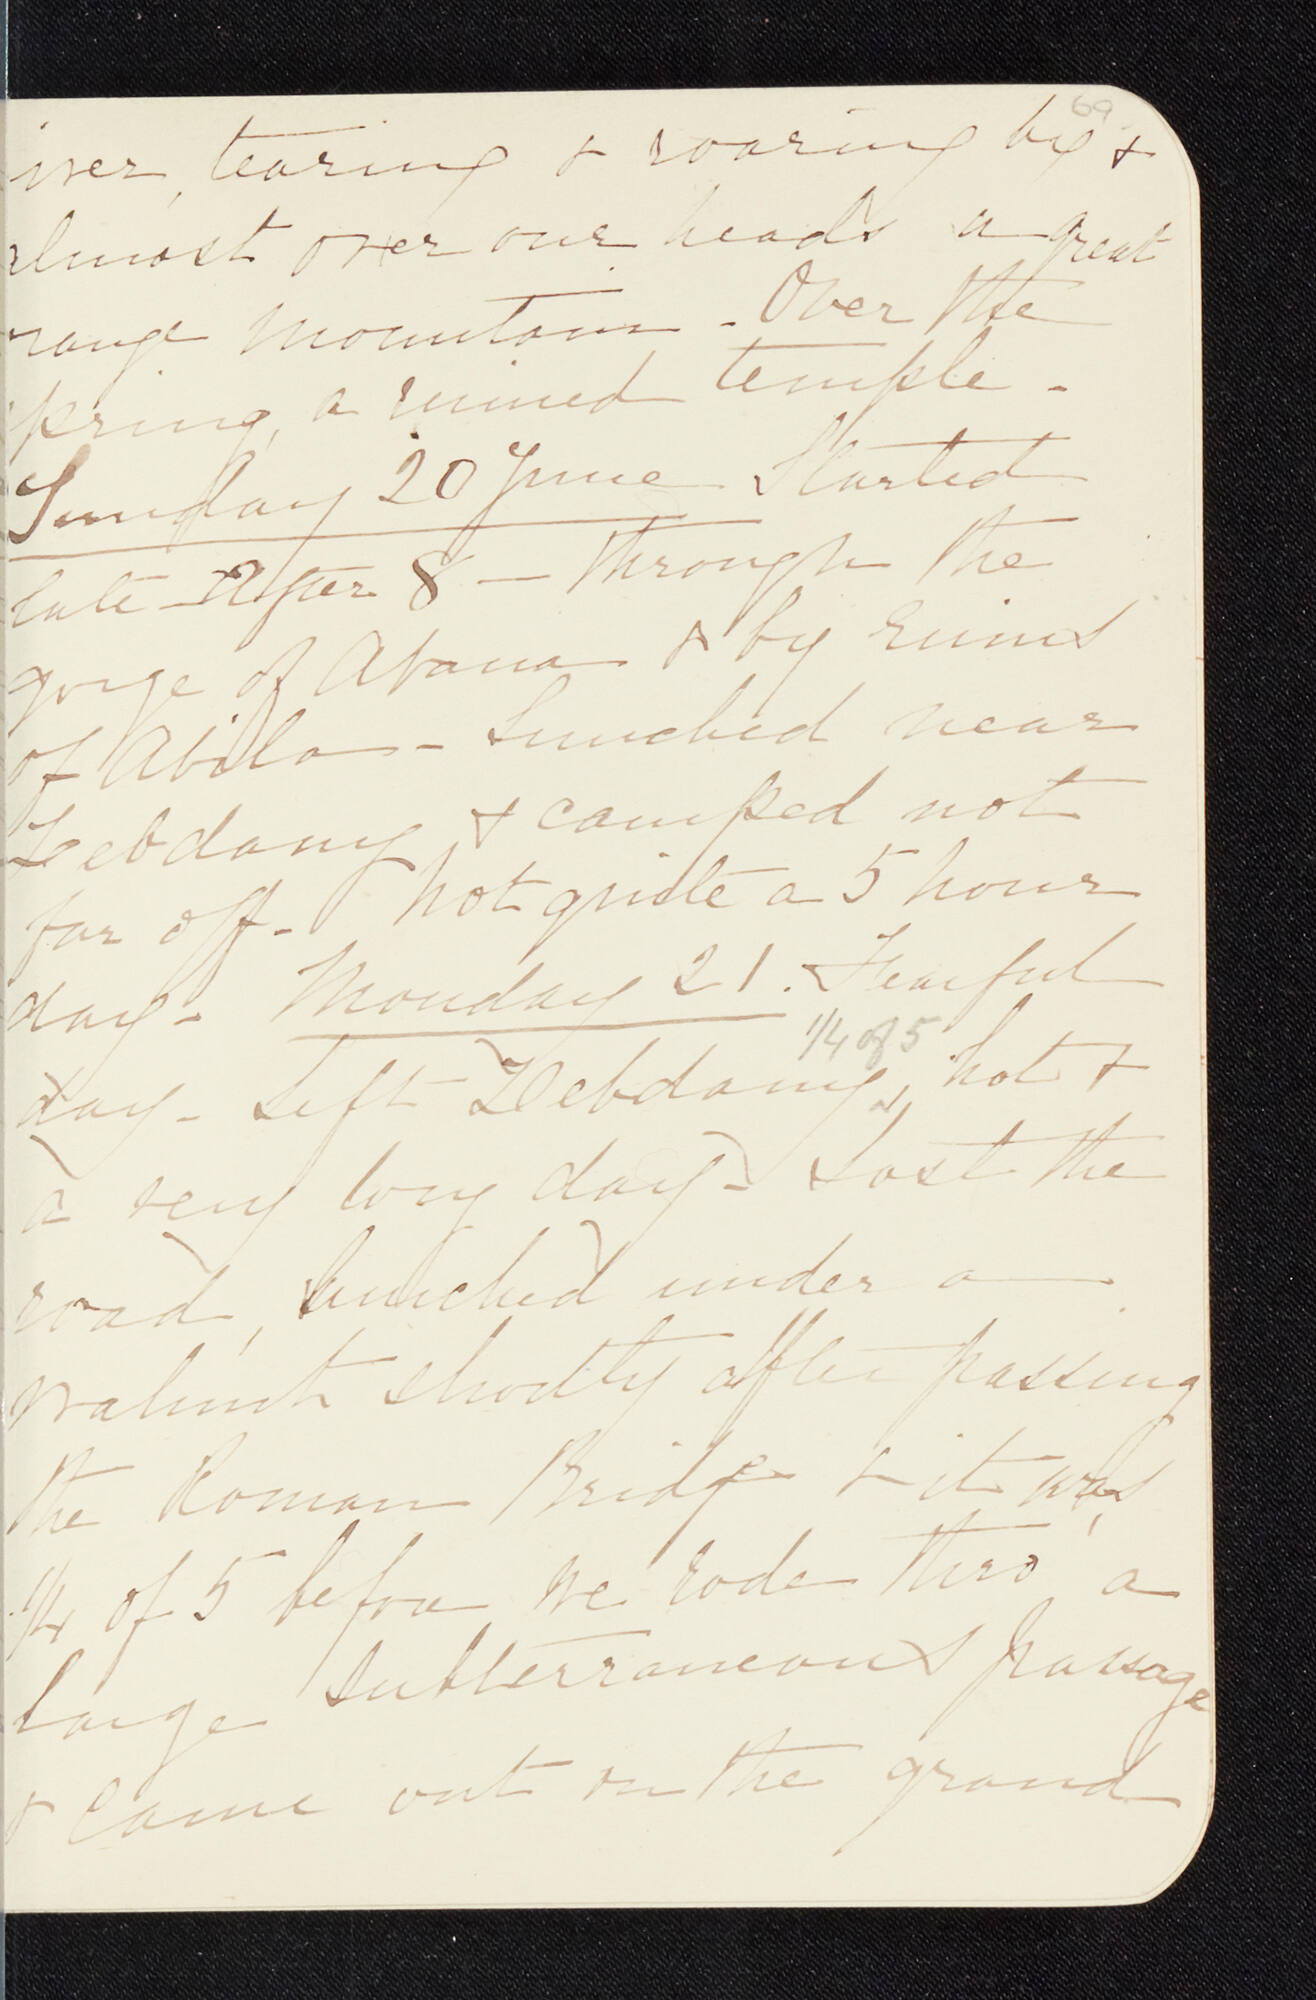 69
iver, tearing & roaring by &
almost over our heads a great
range mountain - Over the
spring, a ruined temple -
Sunday 20 June Started
late - After 8 - through the
gorge of Abana & by ruins
of Abila - Lunched near
Zebdany & camped not
far off - Not quite a 5 hour
day - Monday 21. Fearful
1/4 of 5
day - Left Zebdany, hot &
a very long day - Lost the
road, lunched under a
walnut shortly after passing
the Roman Bridge & it was
1/4 of 5 before we rode thro' a
large subterraneous passage
& came out on the grand